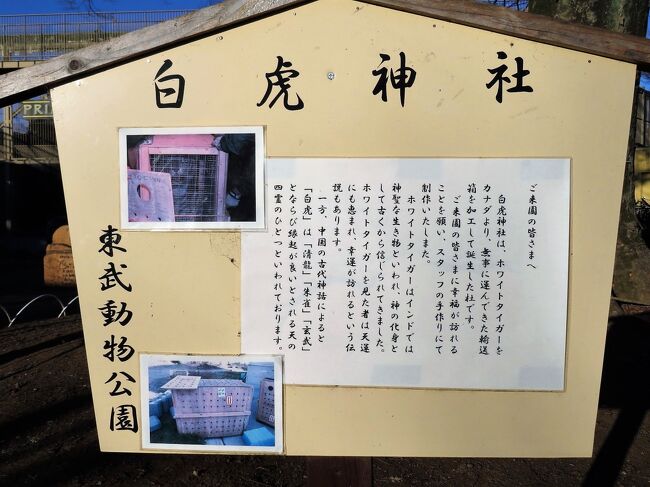 白虎神社
ご来園の皆さまへ
白虎神社は、ホワイトタイガーを
カナダより、無事に運んできた輸送
箱を加工して誕生した社です。
ご来園の皆さまに幸福が訪れる
ことを願い、スタッフの手作りにて
制作いたしました。
ホワイトタイガーはインドでは
神聖な生き物といわれ、神の化身と
して古くから信じられてきました。
ホワイトタイガーを見た者は天運
にも恵まれ、幸運が訪れるという伝
説もあります。
一方、中国の古代神話によると
「白虎」は「清龍」「朱雀」「玄武」
とならび縁起が良いとされる天の
四霊のひとつといわれております。
東武動物公園